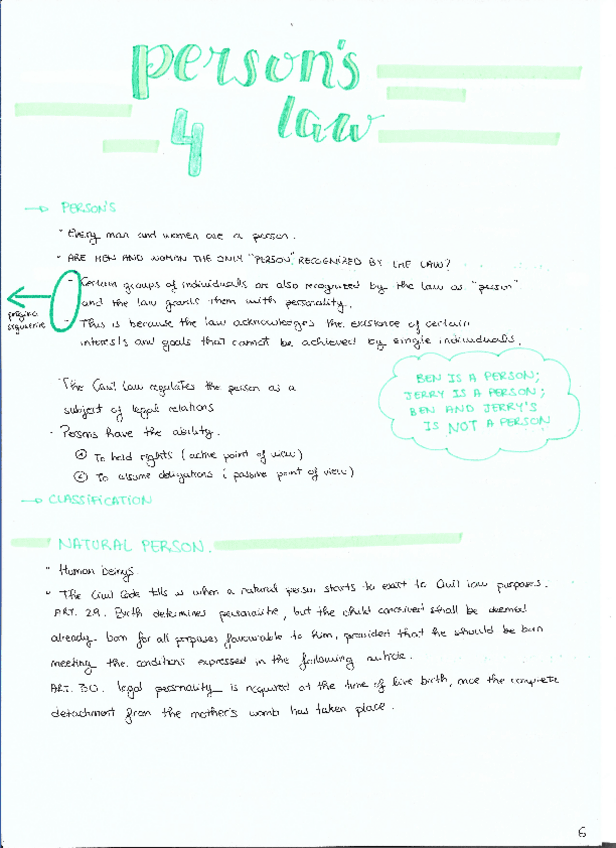 person's
4 law
→ PERSON'S
- Every man and women are a person.
- ARE MEN AND WOMAN THE ONLY "PERSON" RECOGNIZED BY THE LAW?
- Certain groups of individuals are also recognized by the law as "person"
and the law grants them with personality.
página
siguiente
- This is because the law acknowledges the existence of certain
interests and goals that cannot be achieved by single individuals.
BEN IS A PERSON;
JERRY IS A PERSON;
BEN AND JERRY'S
IS NOT A PERSON
- The Civil Law regulates the person as a
subject of legal relations
- Persons have the ability.
① To hold rights (active point of view)
② To assume obligations (passive point of view)
→ CLASSIFICATION
NATURAL PERSON.
- Human beings
- The Civil Code tells us when a natural person starts to exist to Civil law purposes.
ART. 29. Birth determines personalite, but the child conceived shall be deemed
already born for all purposes favourable to him, provided that he should be born
meeting the conditions expressed in the following article.
ART. 30. legal personality is acquired at the time of live birth, once the complete
detachment from the mother's womb has taken place.
6